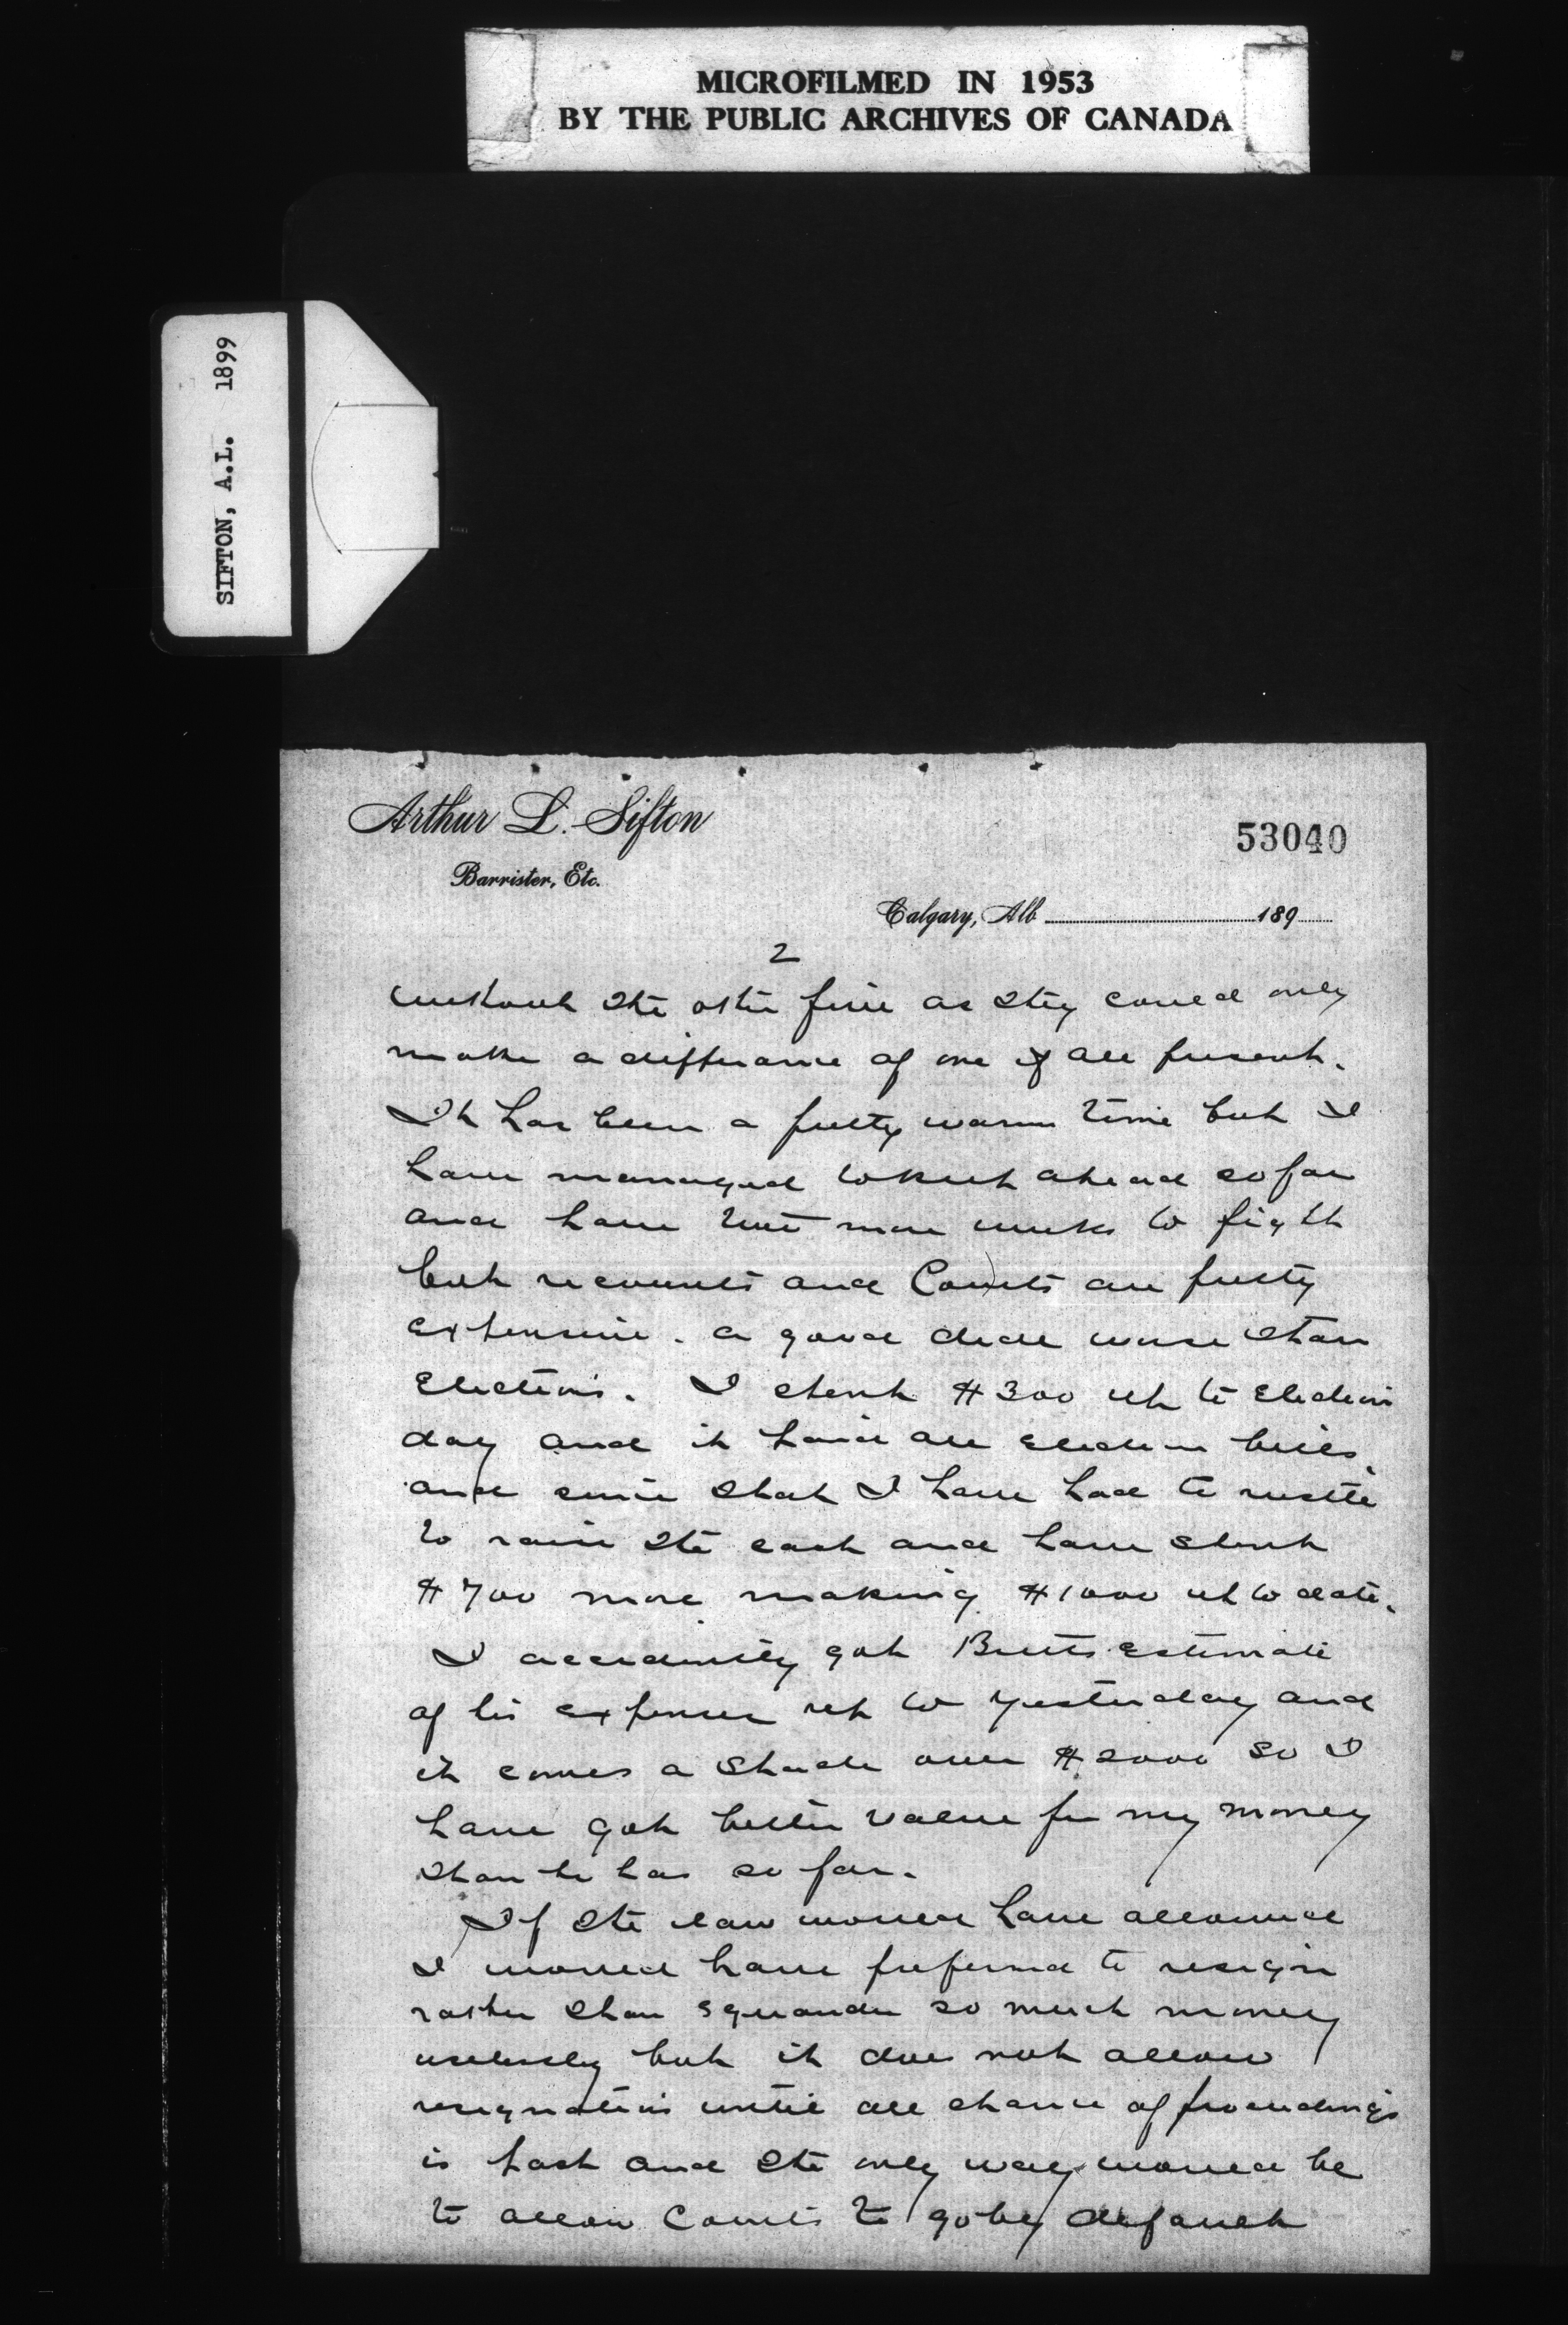 MICROFILMED IN 1953
BY THE PUBLIC ARCHIVES OF CANADA
SIFTON, A.L. 1899
Arthur L. Sifton
Barrister, Etc.
53040
Calgary, Alb 189
2
without the other five as they could only
make a differance of one if all present.
It has been a pretty warm time but I
have managed to keep ahead so far
and have two more weeks to fight
but recounts and Courts are pretty
expensive. a good deal worse than
Elections. I spent $300 up to Election
day and it paid all election bills.
and since that I have had to rustle
to raise the cash and have spent
$700 more making $1000 up to date.
I accidently got Bretts estimate
of his expenses up to yesterday and
it comes a shade over $2000 so I
have got better value for my money
than he has so far.
If the law would have allowed
I would have preferred to resign
rather than squander so much money
uselessly but it does not allow
resignations until all chance of proceedings
is past and the only way would be
to allow Courts to go by default